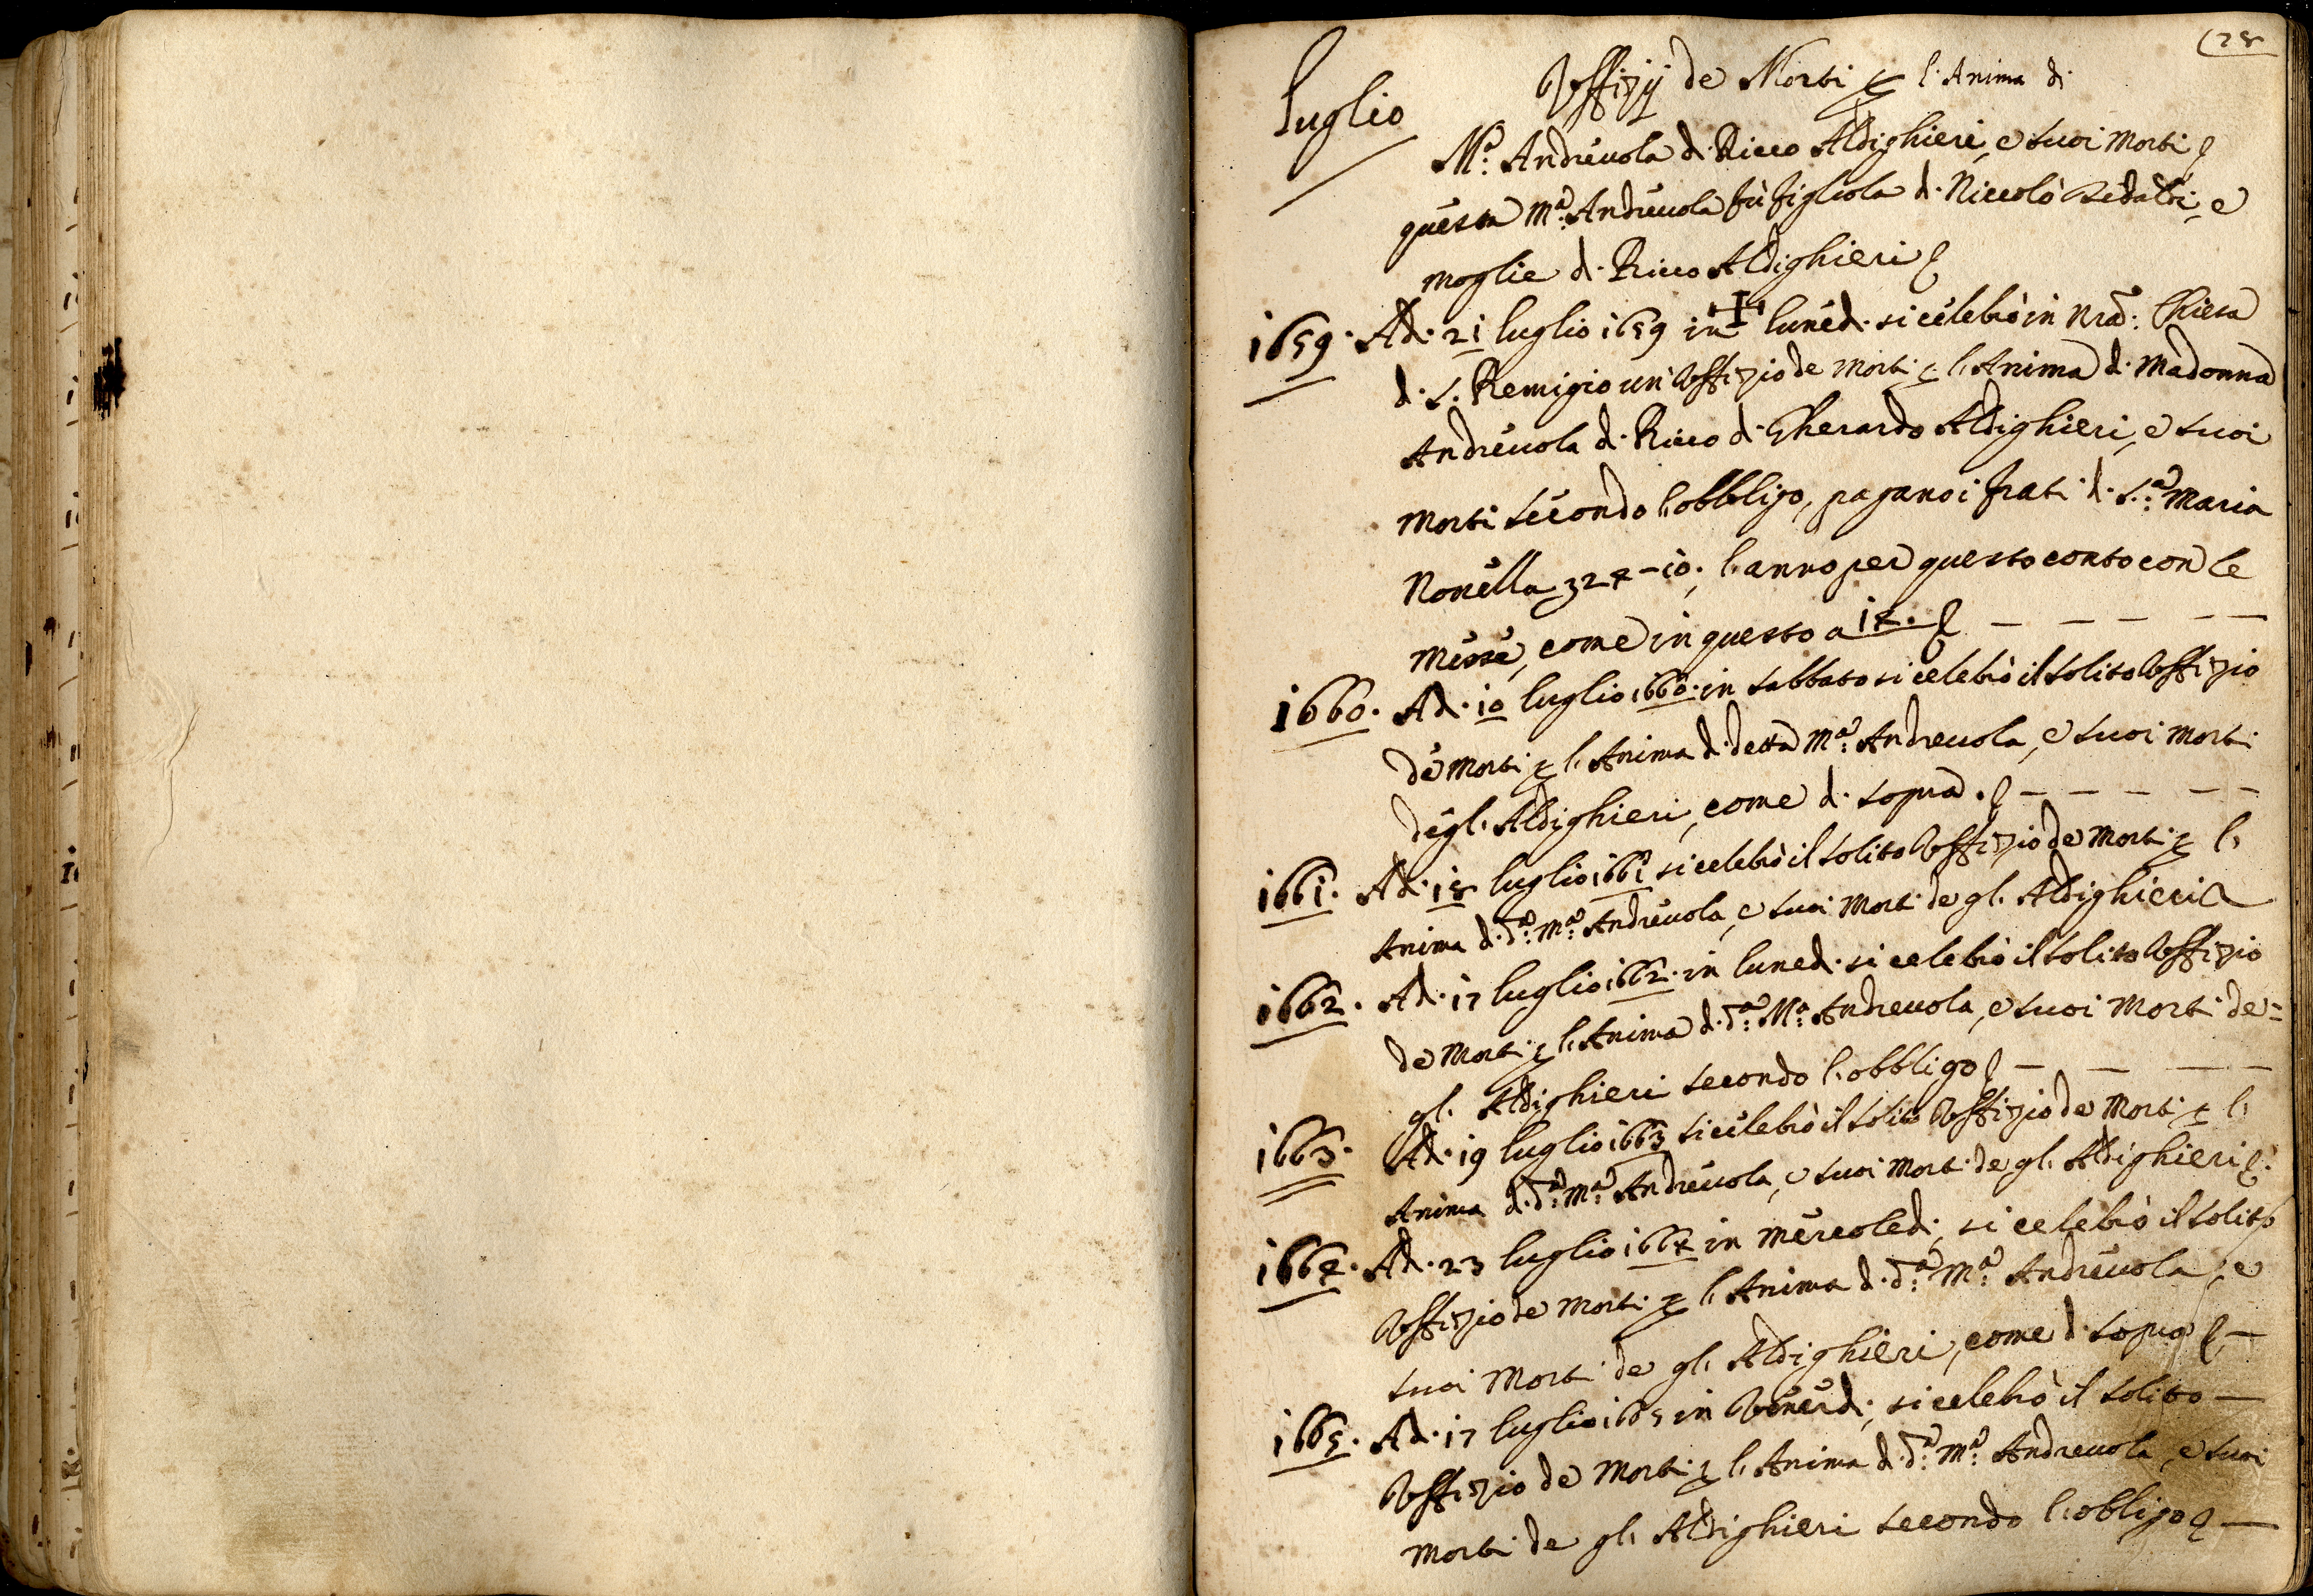 (28
luglio
Uffizij de Morti p l'Anima di
M.ª Andreuola di Ricco Aldighieri, e suoi Morti
questa M.ª Andreuola fù figliola di Niccolò e
moglie di Ricco Aldighieri
1659. Adi 21 luglio 1659 in lunedi si celebrò in nra: Chiesa
di S. Remigio un Uffizio de Morti p l'Anima di Madonna
Andreuola di Ricco di Gherardo Aldighieri, e suoi
Morti secondo l'obbligo, pagano i frati di S.ª Maria
Nouella l'anno per questo conto con le
Messe, come in questo a 14.
1660. Adi 10 luglio 1660. in sabbato si celebrò il solito Uffizio
de Morti p l'Anima di detta M.ª Andreuola, e suoi Morti
degli Aldighieri, come di sopra.
1661. Adi 18 luglio 1661 si celebrò il solito Uffizio de Morti p l'
Anima di d.ª M.ª Andreuola, e suoi Morti de gli Aldighieri
1662. Adi 17 luglio 1662. in lunedi si celebrò il solito Uffizio
de Morti p l'Anima di d.ª M.ª Andreuola, e suoi Morti de=
gli Aldighieri secondo l'obbligo
1663. Adi 19 luglio 1663 si celebrò il solito Uffizio de Morti p l'
Anima di d.ª M.ª Andreuola, e suoi Morti de gli Aldighieri
1664. Adi 23 luglio 1664 in Mercoledi, si celebrò il solito
Uffizio de Morti p l'Anima di d.ª M.ª Andreuola, e
suoi Morti de gli Aldighieri, come di sopra
1665. Adi 17 luglio 1665 in Venerdi, si celebrò il solito
Uffizio de Morti p l'Anima di d.ª M.ª Andreuola, e suoi
Morti de gli Aldighieri secondo l'obligo